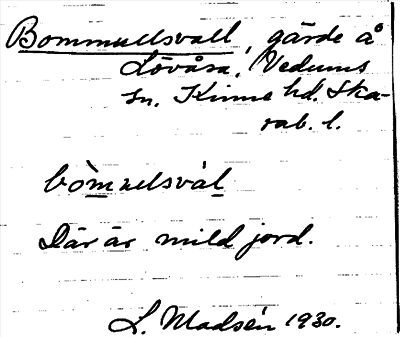 Bommullsvall, gärde å
Lövåsa, Vedums
sn. Kinne hd. Ska-
rab. l.
bòm̲ulsvàl̲
Där är mild jord.
L. Madsén 1930.